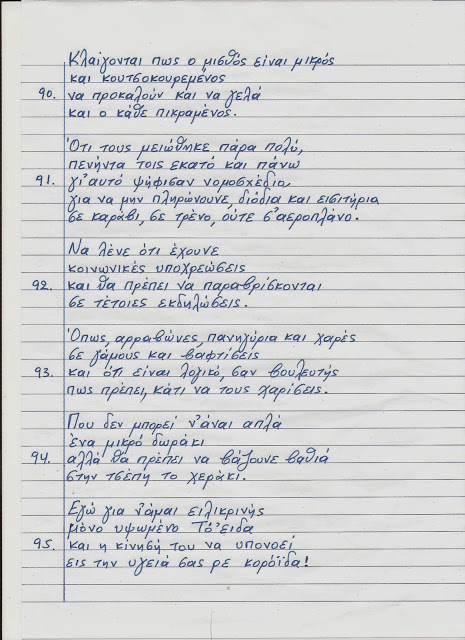 Κλαίγονται πως ο μισθός είναι μικρός
και κουτσοκουρεμένος
90. να προκαλούν και να γελά
και ο κάθε πικραμένος.
Ότι τους μειώθηκε πάρα πολύ,
πενήντα τοις εκατό και πάνω
91. γι'αυτό ψήφισαν νομοσχέδιο,
για να μην πληρώνουνε, διόδια και εισιτήρια
σε καράβι, σε τρένο, ούτε σ'αεροπλάνο.
Να λένε ότι έχουνε
κοινωνικές υποχρεώσεις
92. και θα πρέπει να παραβρίσκονται
σε τέτοιες εκδηλώσεις.
Όπως, αρραβώνες, πανηγύρια και χαρές
σε γάμους και βαφτίσεις
93. και ότι είναι λογικό, σαν βουλευτής
πως πρέπει, κάτι να τους χαρίσεις.
Που δεν μπορεί ν'άναι απλά
ένα μικρό δωράκι
94. αλλά θα πρέπει να βάζουνε βαθιά
στην τσέπη το χεράκι.
Εγώ για νάμαι ειλικρινής
μόνο υψωμένο Τό'ειδα
95. και η κίνησή του να υπονοεί
εις την υγειά σας ρε κορόϊδα!